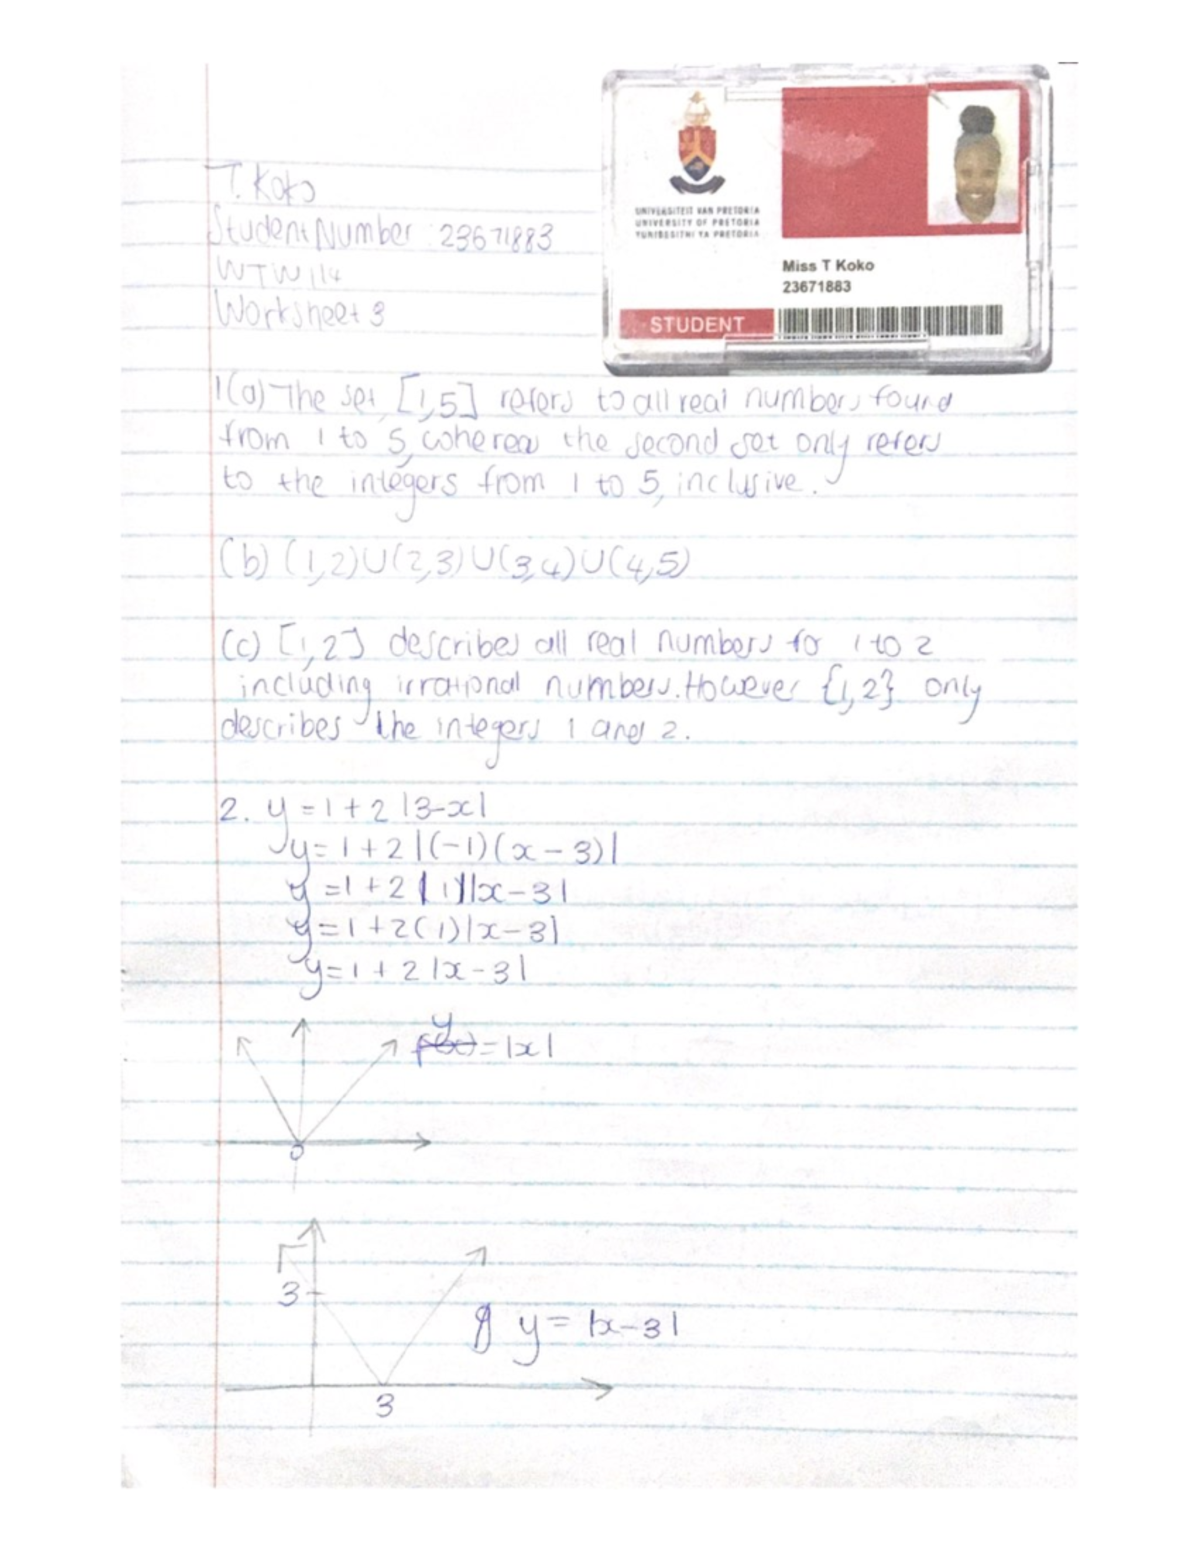 T. Koko
Student Number : 23671883
WTW 114
Worksheet 3
UNIVERSITEIT VAN PRETORIA
UNIVERSITY OF PRETORIA
YUNIBESITHI YA PRETORIA
Miss T Koko
23671883
STUDENT
1(a) The set [1,5] refers to all real numbers found
from 1 to 5, whereas the second set only refers
to the integers from 1 to 5, inclusive.
(b) (1,2)∪(2,3)∪(3,4)∪(4,5)
(c) [1,2] describes all real numbers for 1 to 2
including irrational numbers. However {1,2} only
describes the integers 1 and 2.
2. y = 1 + 2 |3-x|
y = 1 + 2 |(-1)(x - 3)|
y = 1 + 2 |1||x - 3|
y = 1 + 2(1)|x - 3|
y = 1 + 2 |x - 3|
y = |x|
0
3
y = |x - 3|
3